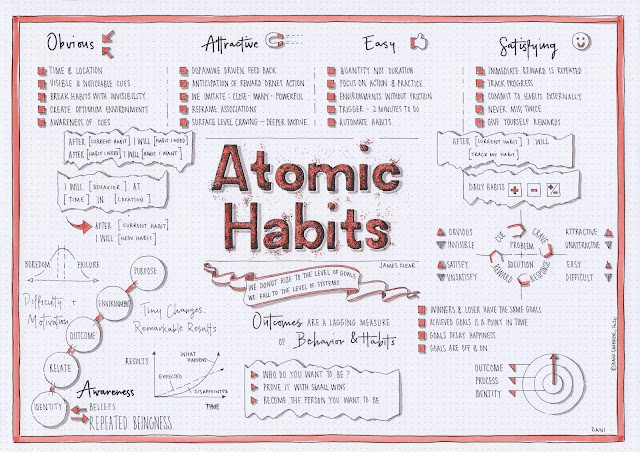 Obvious
TIME & LOCATION
VISIBLE & NOTICABLE CUES
BREAK HABITS WITH INVISIBILITY
CREATE OPTIMUM ENVIRONMENTS
AWARENESS OF CUES
Attractive
DOPAMINE DRIVEN FEED BACK
ANTICIPATION OF REWARD DRIVES ACTION
WE IMITATE: CLOSE- MANY- POWERFUL
REFRAME ASSOCIATIONS
SURFACE LEVEL CRAVING - DEEPER MOTIVE
Easy
QUANTITY NOT DURATION
FOCUS ON ACTION & PRACTICE
ENVIRONMENTS WITHOUT FRICTION
TRIGGER - 2 MINUTES TO DO
AUTOMATE HABITS
Satisfying
IMMEDIATE REWARD IS REPEATED
TRACK PROGRESS
COMMIT TO HABITS EXTERNALLY
NEVER MISS TWICE
GIVE YOURSELF REWARDS
AFTER [CURRENT HABIT] I WILL [HABIT I NEED]
AFTER [HABIT I NEED] I WILL [HABIT I WANT]
I WILL [BEHAVIOR] AT
[TIME] IN [LOCATION]
AFTER [CURRENT HABIT]
I WILL [NEW HABIT]
Atomic
Habits
JAMES CLEAR
WE DO NOT RISE TO THE LEVEL OF GOALS
WE FALL TO THE LEVEL OF SYSTEMS
AFTER [CURRENT HABIT] I WILL
[TRACK MY HABIT]
DAILY HABITS + - +/-
OBVIOUS
INVISIBLE
SATISFY
UNSATISFY
CUE
CRAVE
PROBLEM
SOLUTION
REWARD
RESPONSE
ATTRACTIVE
UNATTRACTIVE
EASY
DIFFICULT
BOREDOM
FAILURE
Difficulty +
Motivation
PURPOSE
ENVIRONMENT
OUTCOME
RELATE
IDENTITY
Tiny Changes.
Remarkable Results
Outcomes ARE A LAGGING MEASURE
OF Behavior & Habits
RESULTS
WHAT
HAPPENS
EXPECTED
DISAPPOINTED
TIME
Awareness
BELIEFS
REPEATED BEINGNESS
WHO DO YOU WANT TO BE?
PROVE IT WITH SMALL WINS
BECOME THE PERSON YOU WANT TO BE
WINNERS & LOSER HAVE THE SAME GOALS
ACHIEVED GOALS IS A POINT IN TIME
GOALS DELAY HAPPINESS
GOALS ARE OFF & ON
OUTCOME
PROCESS
IDENTITY
DANI